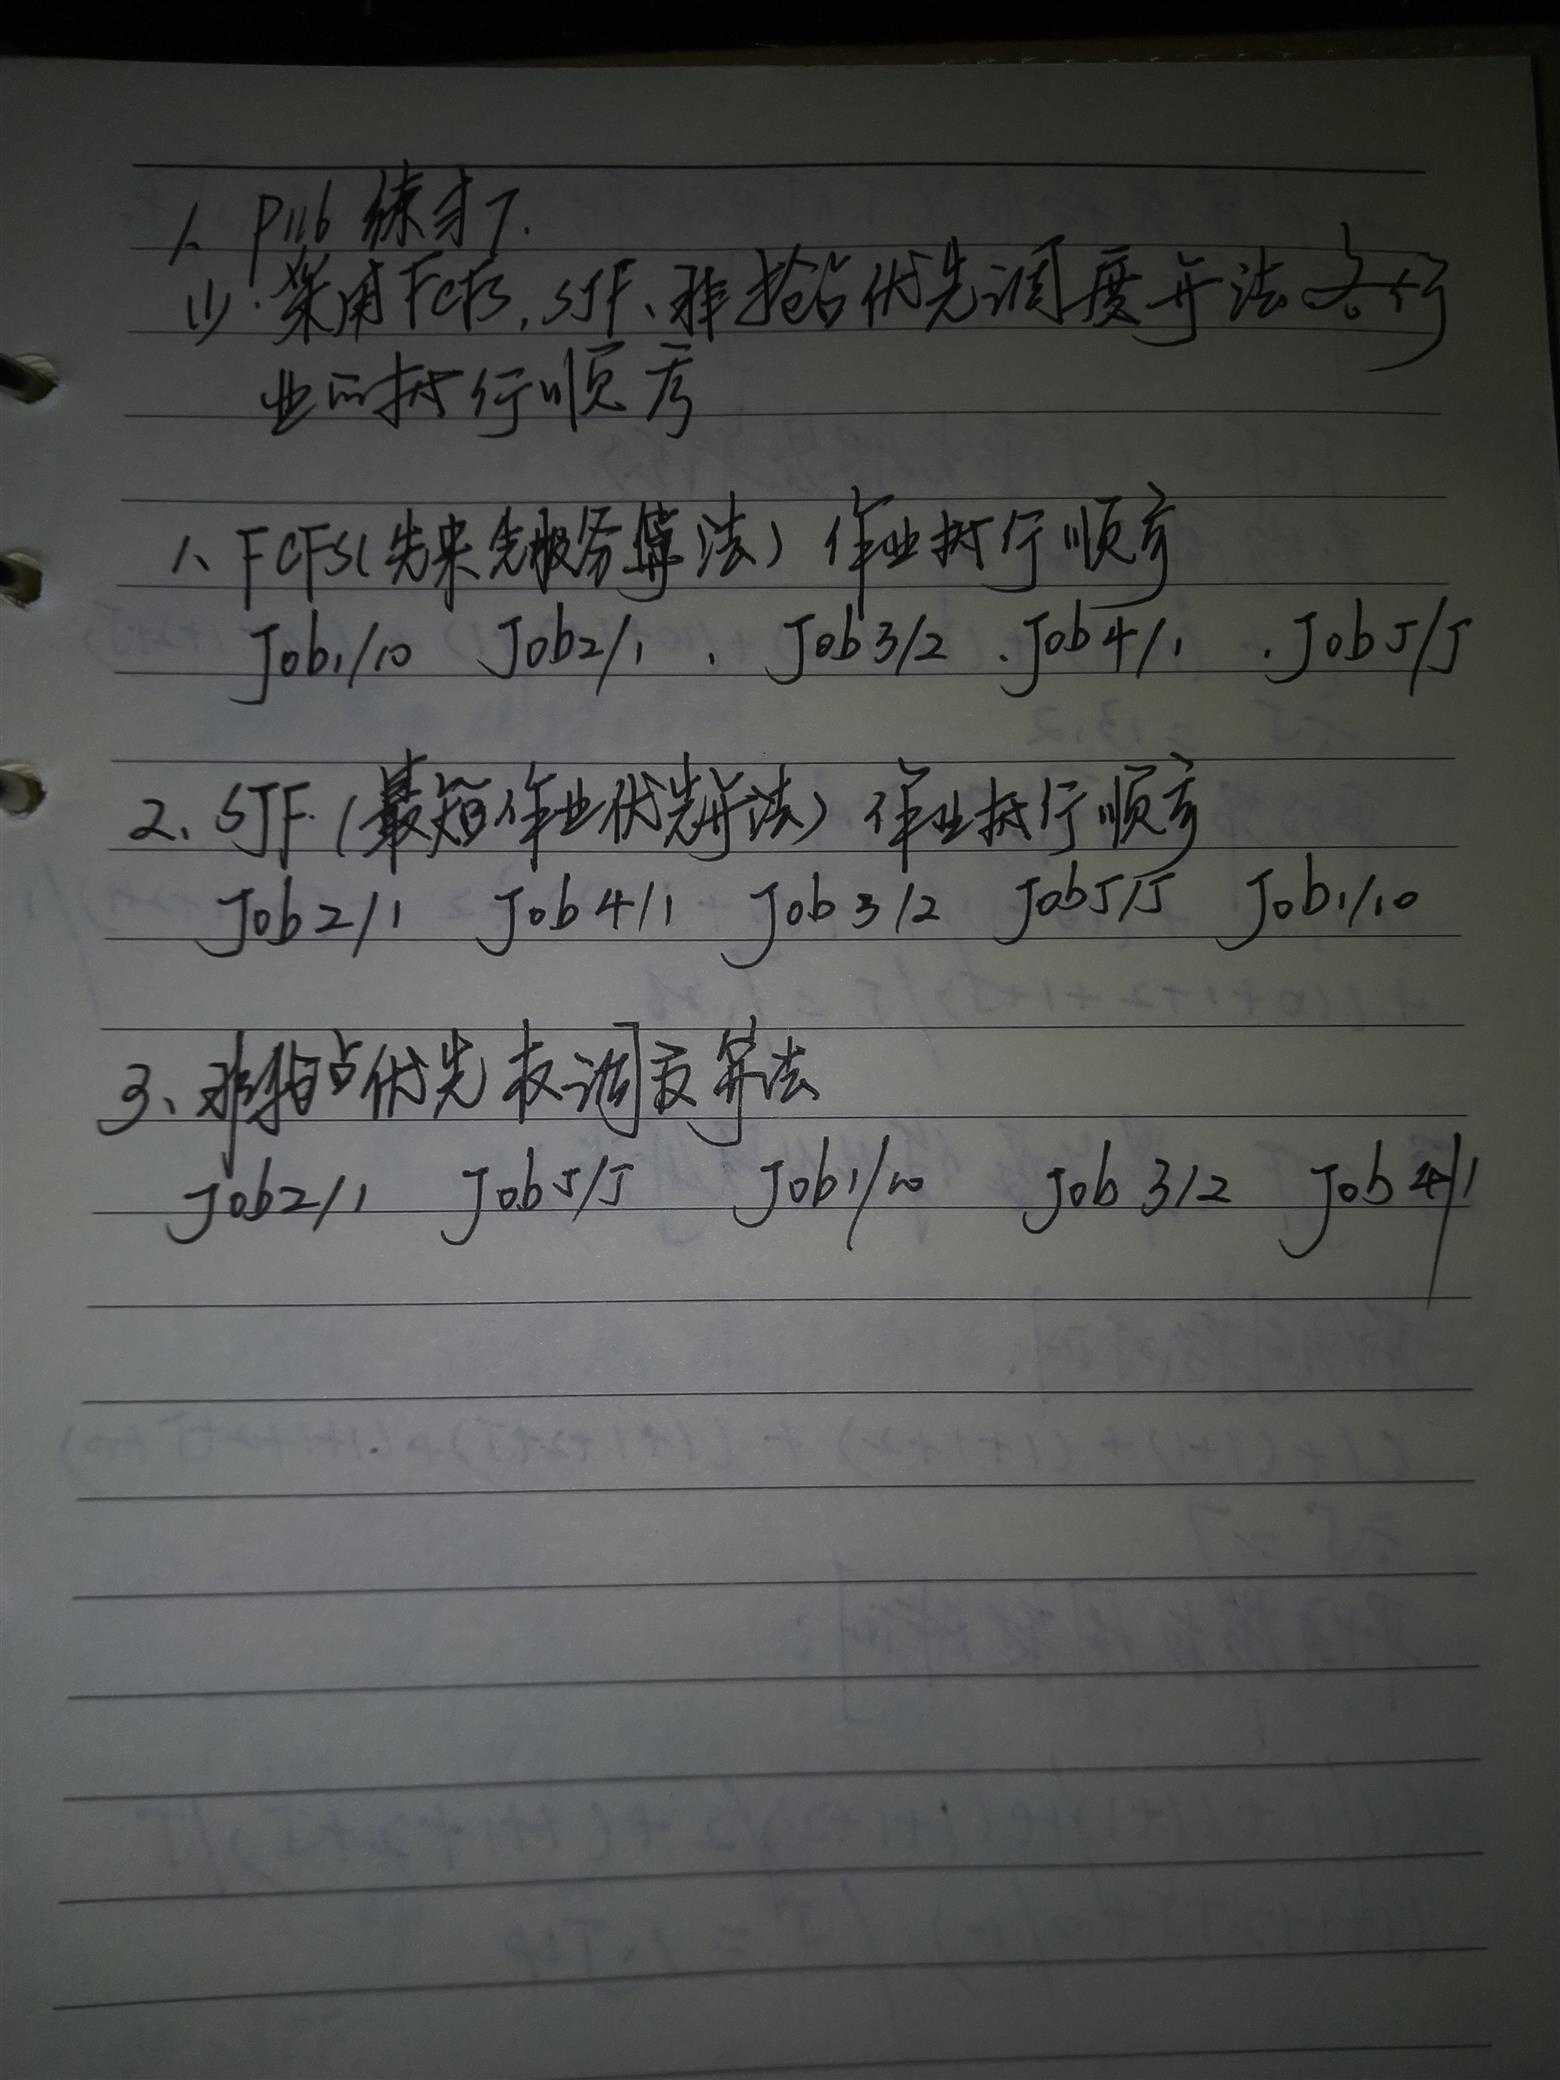 1. P116 练习7.
(1). 采用FCFS, SJF、非抢占优先调度算法各作
业的执行顺序
1、FCFS(先来先服务算法) 作业执行顺序
Job1/10 Job2/1 . Job3/2 . Job4/1 . Job5/5
2、SJF. (最短作业优先算法) 作业执行顺序
Job2/1 Job4/1 Job3/2 Job5/5 Job1/10
3、非抢占优先权调度算法
Job2/1 Job5/5 Job1/10 Job3/2 Job4/1